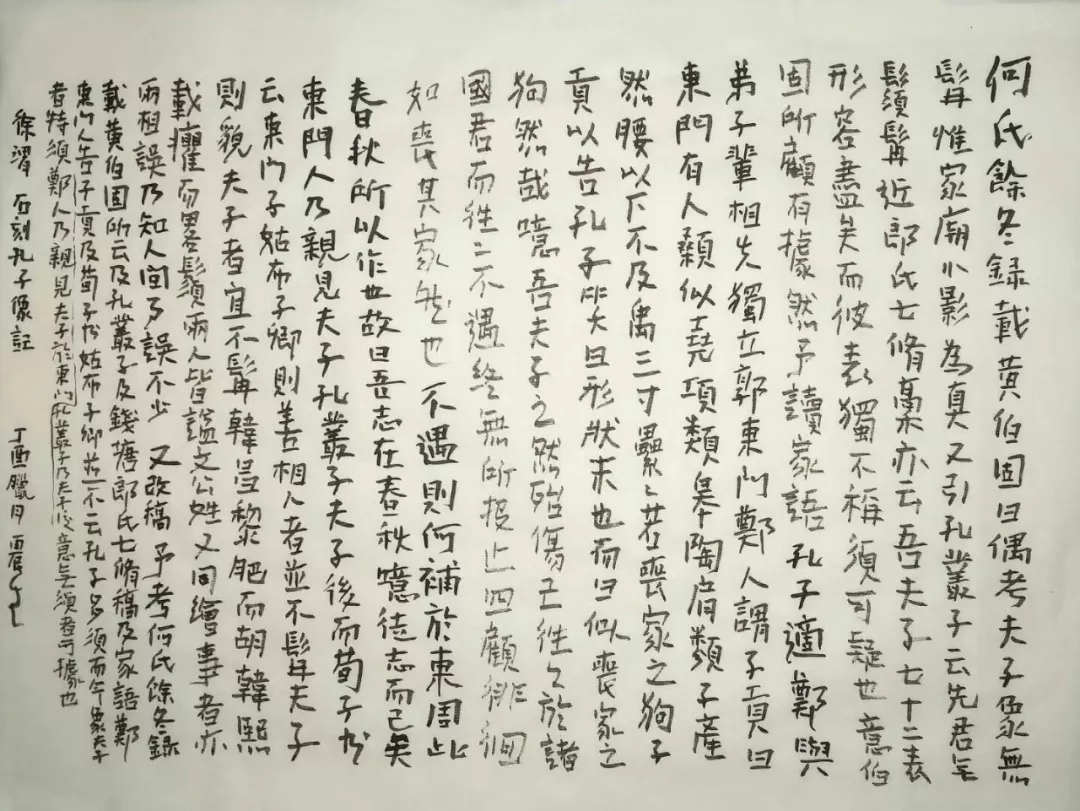 何氏餘冬録載黄伯固曰偶考夫子像無
髯惟家廟小影為真又引孔叢子云先君無
鬚髯近郎氏七脩稾亦云吾夫子七十二表
形容盡矣而彼表獨不稱須可疑也意伯
固所顧有據然予讀家語孔子適鄭與
弟子輩相失獨立郭東門鄭人謂子貢曰
東門有人顙似堯項類皋陶肩類子產
然腰以下不及禹三寸纍纍若喪家之狗子
貢以告孔子笑曰形狀末也而曰似喪家之
狗然哉噫吾夫子之然殆傷己往久於諸
國君而往二不遇終無所投止四顧徘徊
如喪其家然也不遇則何補於東周此
春秋所以作也故曰吾志在春秋噫徒志而已矣
東門人乃親見夫子孔叢子夫子後而荀子書
云東門子姑布子卿則善相人者並不髯夫子
則貌夫子者宜不髯韓昌黎肥而胡韓熙
載癯而畧鬚兩人皆謚文公姓又同繪事者亦
兩相誤乃知人間多誤不少 又改稿 予考何氏餘冬録
載黄伯固所云及孔叢子及錢塘郎氏七脩稿及家語鄭
東門人告子貢及荀子書姑布子卿並不云孔子多須而今象夫子
者特須鄭人乃親見夫子於東門孔叢子乃夫子後意無須者可據也
徐渭 石刻孔子像記 丁酉臘月